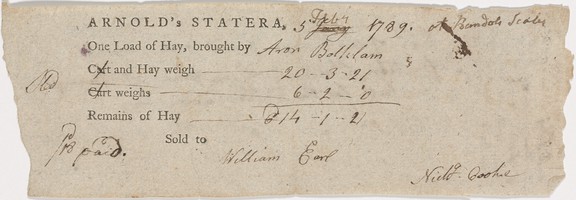 ARNOLD's STATERA, 5 Feby 1789. at Randols Scales
One Load of Hay, brought by Aron
Cart and Hay weigh 20-3-21
Cart weighs 6-2-0
Remains of Hay 14-1-21
Sold to
paid.
William Earl
Cooke